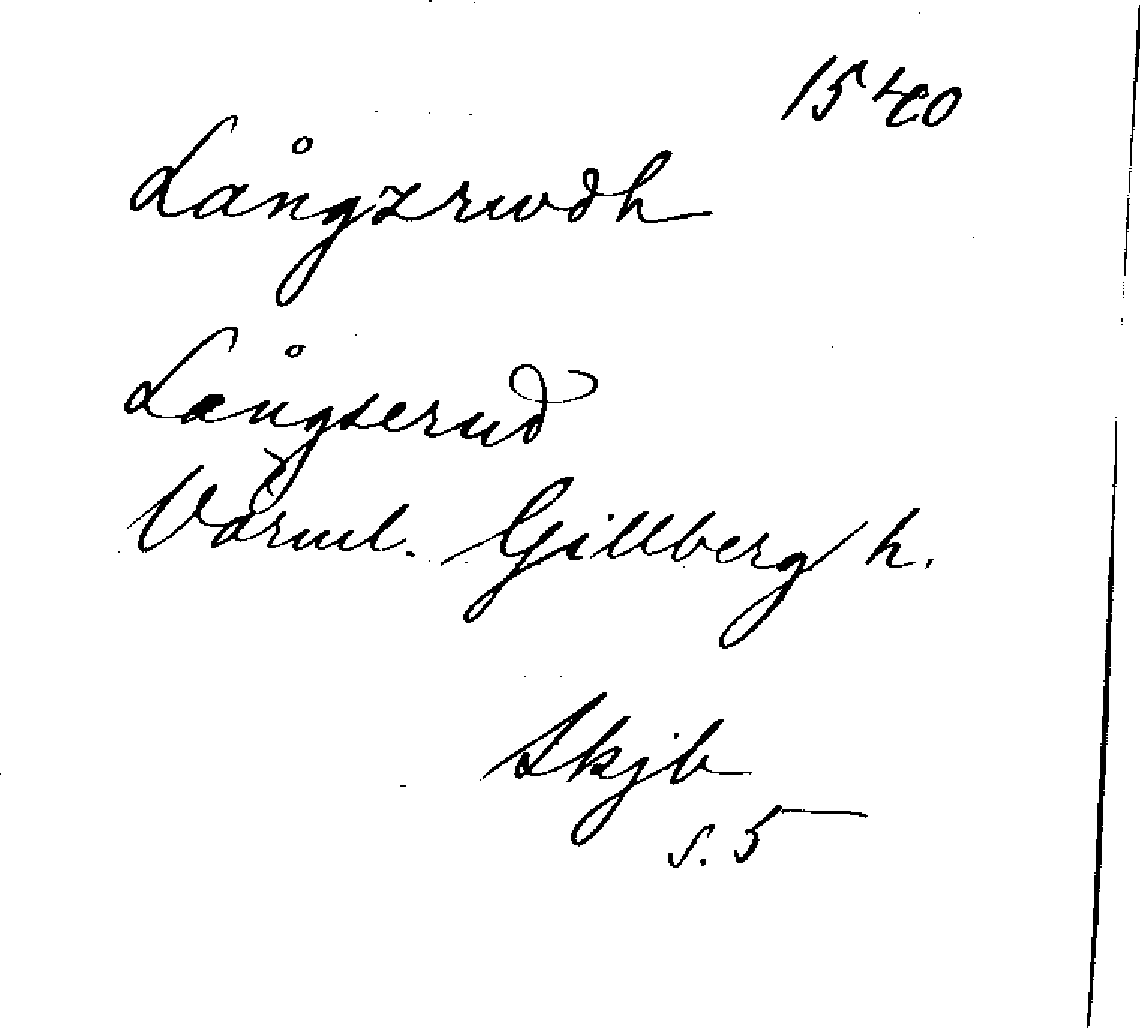 1540
Långzrwdh
Långserud
Värml. Gillberg h.
Skjb
s. 5